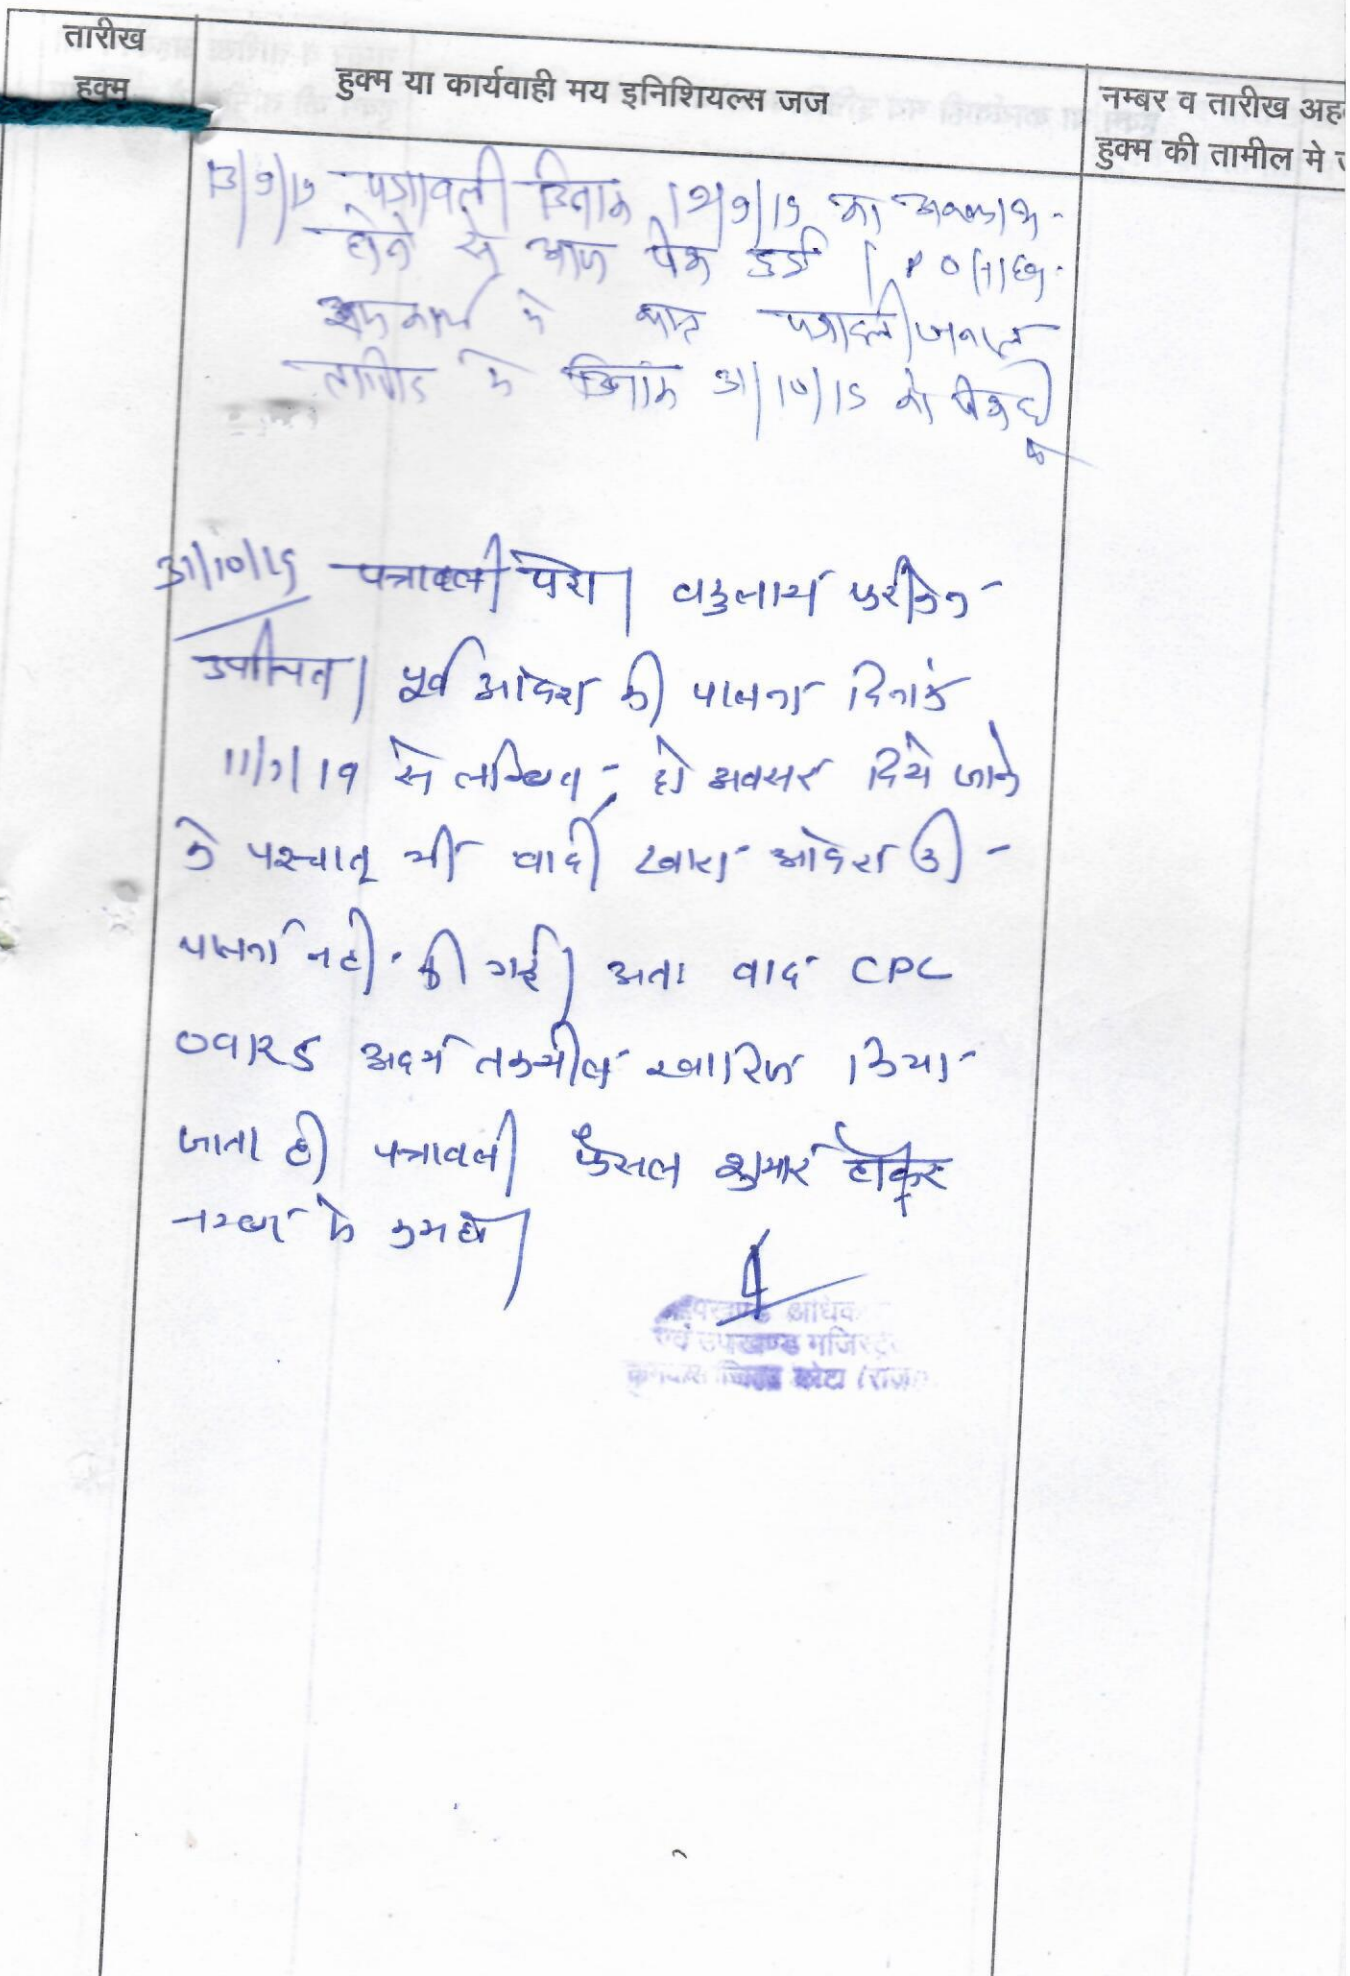 तारीख
हुक्म
हुक्म या कार्यवाही मय इनिशियल्स जज
नम्बर व तारीख अह
हुक्म की तामील मे ज
13/9/19 पत्रावली दिनांक 12/9/19 का अवकाश
होने से आज पेश हुई।
के बाद पत्रावली
के दिनांक 31/10/19 को पेश हो
31/10/19 पत्रावली पेश। वकुलाय फरीकेन
उपस्थित। पूर्व आदेश की पालना दिनांक
11/7/19 से लम्बित है। अवसर दिये जाने
के पश्चात् भी वादी द्वारा आदेश की
पालना नही की गई। अतः वाद CPC
अदम तकमील खारिज किया
जाता है। पत्रावली फैसल शुमार होकर
नम्बर से कम हो।
उपखण्ड अधिक
एवं उपखण्ड मजिस्ट्र
जिला कोटा (राज